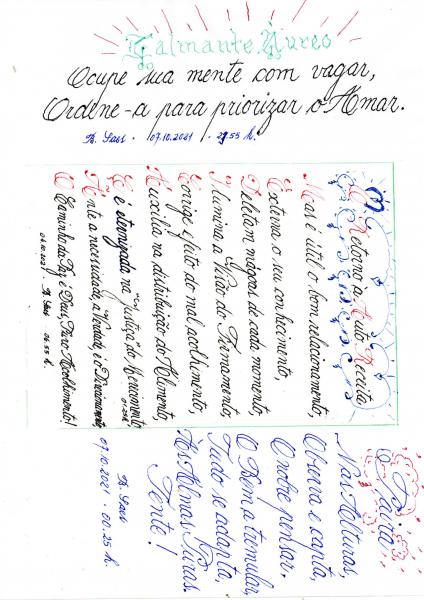 Calmante Áureo
Ocupe sua mente com vagar,
Ordene-a para priorizar o Amar.
B. Saes . 07.10.2021 . 23.55 h.
O Retorno a Auto Receita
Mas é útil o bom relacionamento,
Externa o seu conhecimento,
Deletam mágoas de cada momento,
Ilumina a Visão do Firmamento,
Corrige efeito do mal acolhimento,
Auxilia na distribuição do Alimento,
E é eternizada na Justiça do Vencimento,
Ante a necessidade, a Verdade, é o Discernimento,
O Caminho da Paz é Deus, Puro Acolhimento!
06.10.2021 . B. Saes . 06.55 h.
O Paira
Nas Alturas,
Observa e capta,
O nobre pensar.
O Bem a tremular,
Tudo se adapta,
Às Almas Puras.
Tente!
B. Saes
07.10.2021 . 00.25 h.